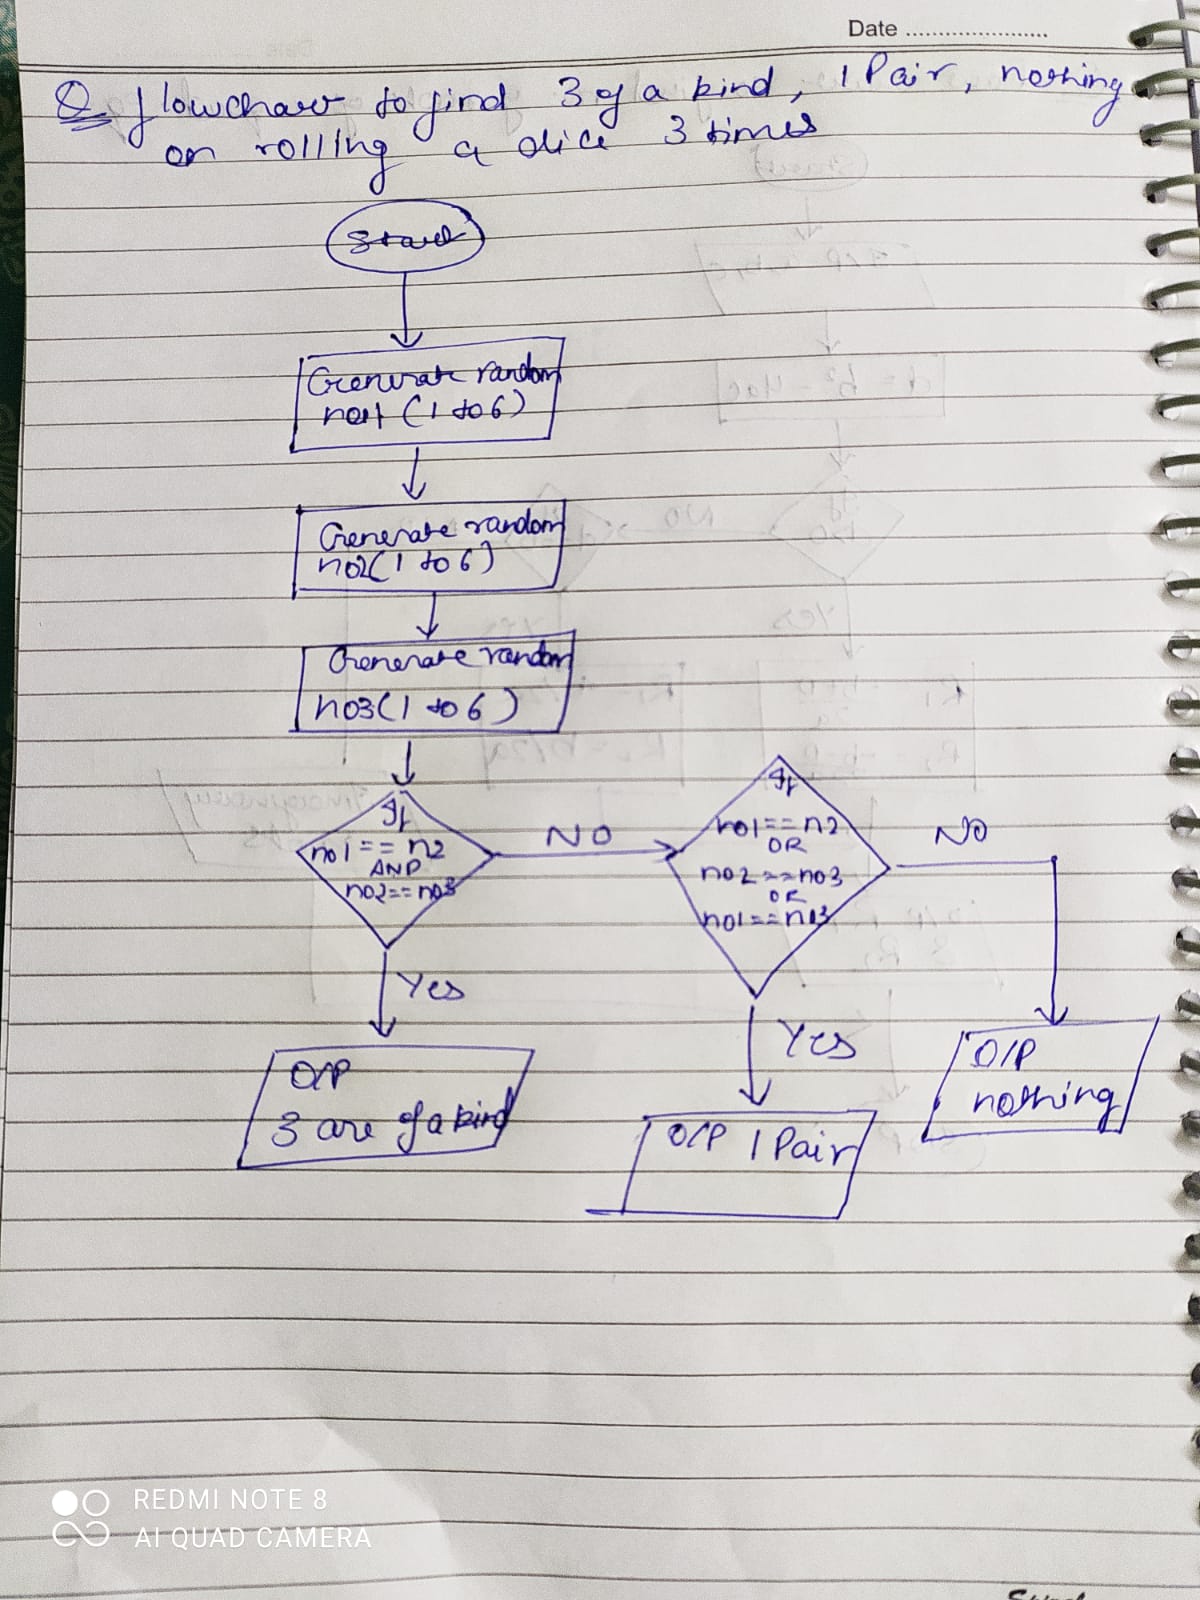 Date
Q flowchart to find 3 of a kind, 1 Pair, nothing
on rolling a dice 3 times
Start
Generate random
no1 (1 to 6)
Generate random
no2 (1 to 6)
Generate random
no3 (1 to 6)
If
no1 == n2
AND
no2 == no3
NO
If
no1 == n2
OR
no2 == no3
OR
no1 == no3
NO
Yes
Yes
O/P
3 are of a kind
O/P 1 Pair
O/P
nothing
REDMI NOTE 8
AI QUAD CAMERA